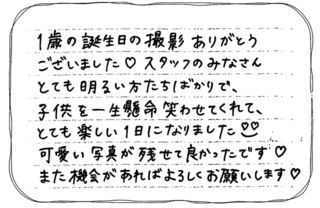 1歳の誕生日の撮影 ありがとう
ございました♡ スタッフのみなさん
とても明るい方たちばかりで、
子供を一生懸命 笑わせてくれて、
とても楽しい1日になりました
可愛い写真が残せて良かったです♡
また機会があればよろしくお願いします♡